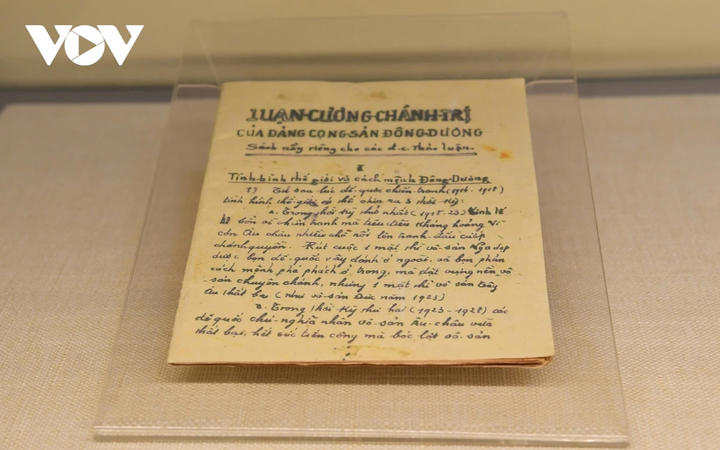 VOV
LUẬN-CƯƠNG-CHÁNH-TRỊ
CỦA ĐẢNG CỘNG-SẢN ĐÔNG-DƯƠNG
Sách nầy riêng cho các đ.c. thảo luận.
I
Tình-hình thế giới và cách mệnh Đông-Dương
1) Từ sau lúc đế quốc chiến tranh (1914-1918)
tình hình thế giới có thể chia ra 3 thời kỳ:
a. Trong thời kỳ thứ nhất (1918-23) kinh tế
tư bổn vì chiến tranh mà tiêu điều khủng hoảng. Vì
còn Âu châu nhiều chỗ nổi lên tranh đấu cướp
chánh quyền. Rút cuộc 1 mặt thì vô-sản Nga dẹp
được bọn đế-quốc vây đánh ở ngoài, và bọn phản
cách mệnh phá phách ở trong, mà đặt vững nền vô-
sản chuyên chánh, nhưng 1 mặt thì vô sản Tây
Âu thất bại (như vô-sản Đức năm 1923)
b. Trong thời kỳ thứ hai (1923-1928) các
đế quốc chủ-nghĩa nhân vô-sản Âu-châu vừa
thất bại, hết sức tiến công mà bóc lột vô-sản